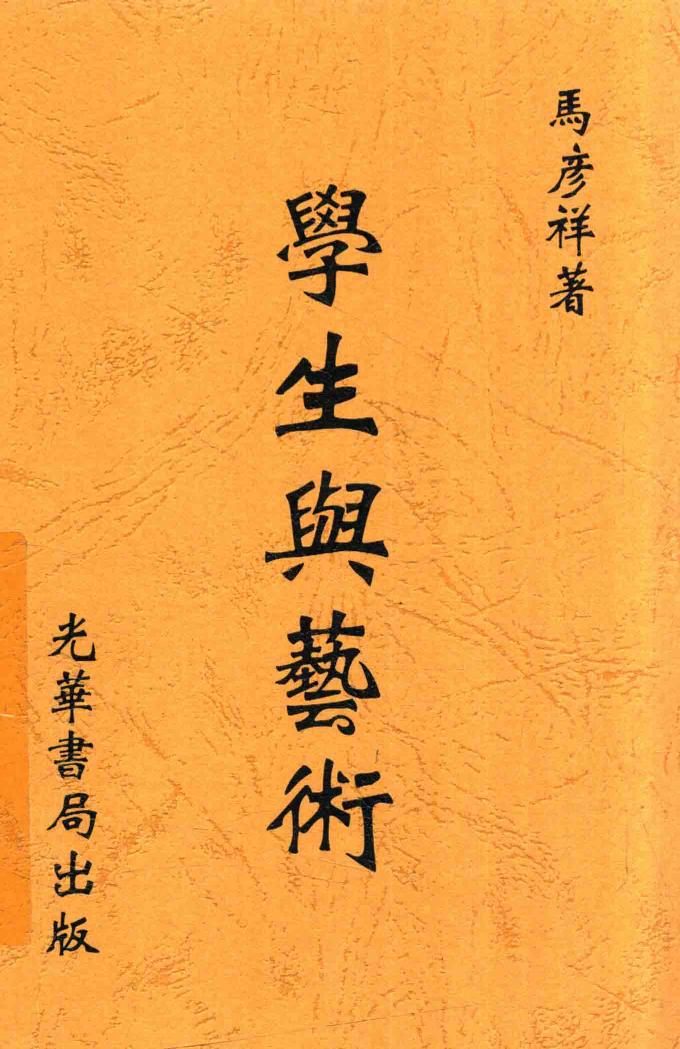 馬彦祥著
學生與藝術
光華書局出版